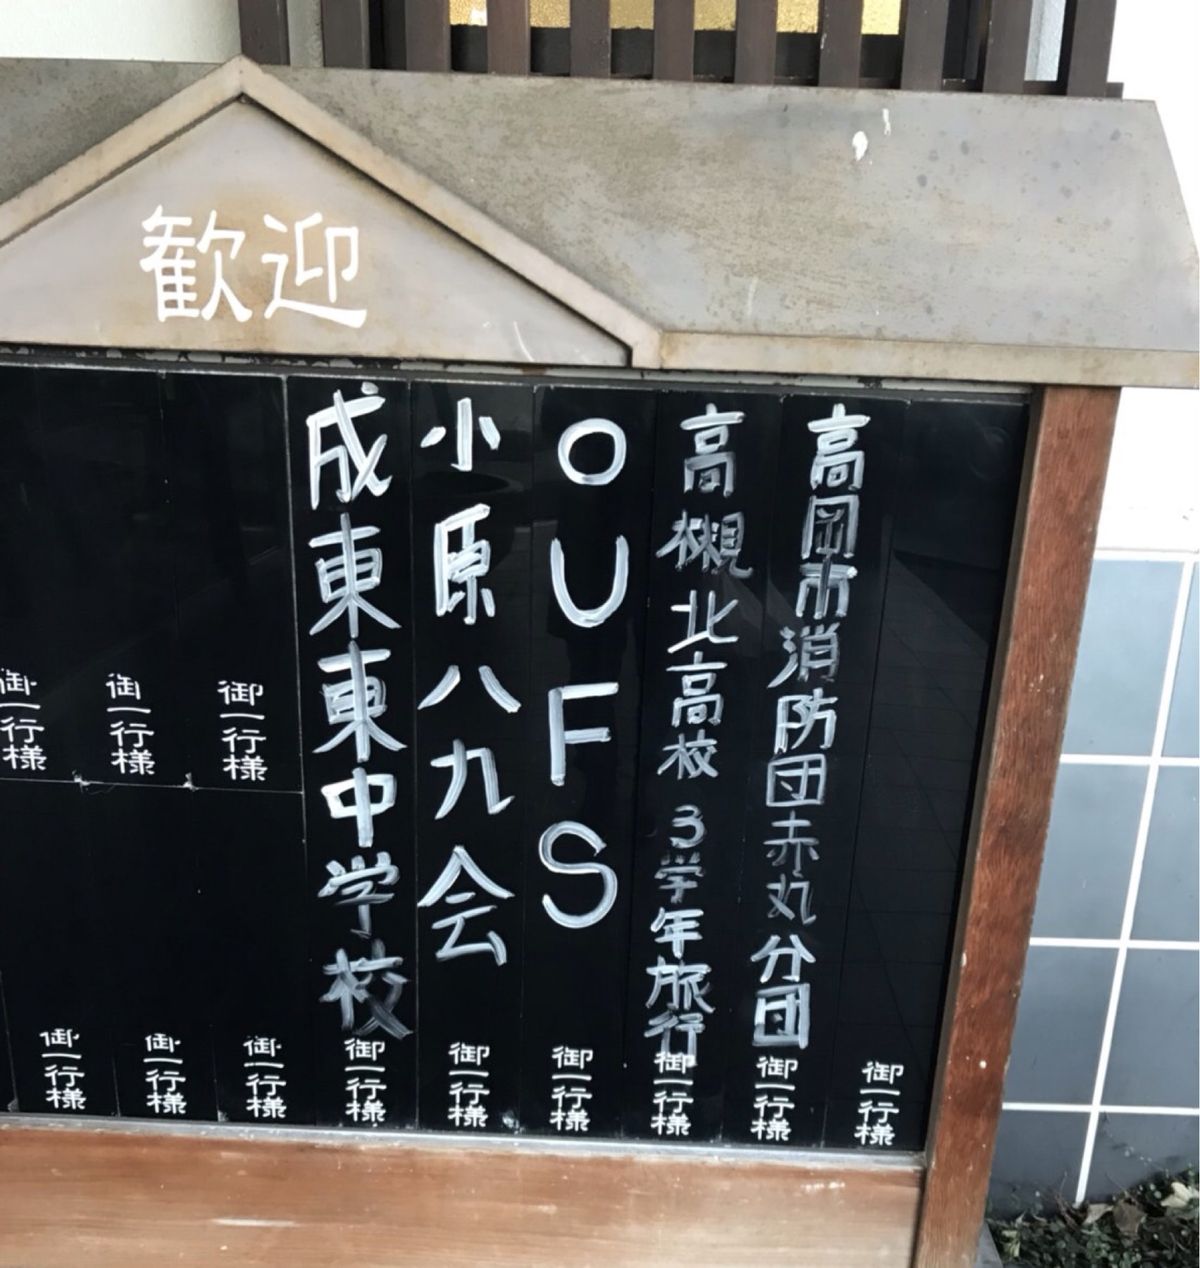 歓迎
御一行様
高岡市消防団赤丸分団 御一行様
高槻北高校 3学年旅行 御一行様
OUFS 御一行様
小原八九会 御一行様
成東東中学校 御一行様
御一行様
御一行様
御一行様
御一行様
御一行様
御一行様